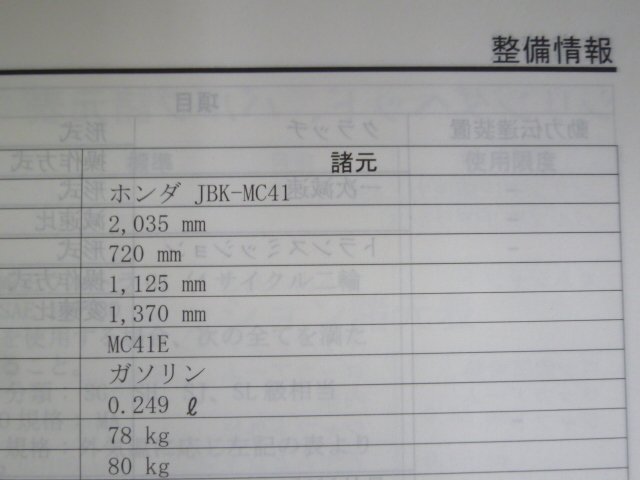 整備情報
諸元
ホンダ JBK-MC41
2,035 mm
720 mm
1,125 mm
1,370 mm
MC41E
ガソリン
0.249 ℓ
78 kg
80 kg